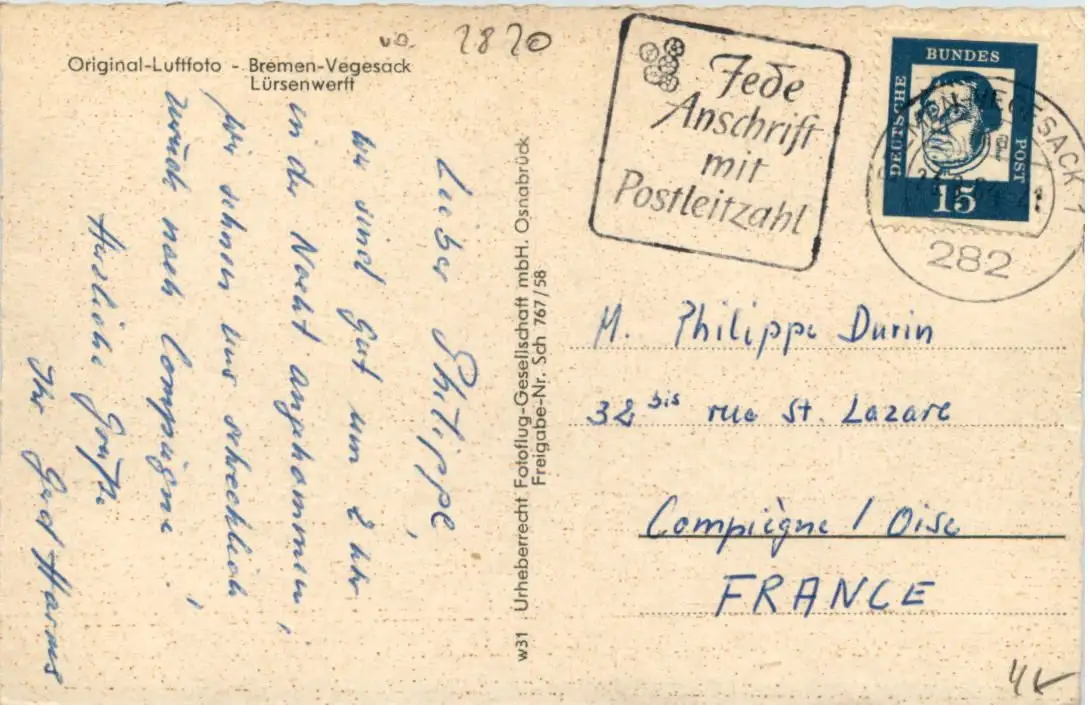 2820
Original-Luftfoto - Bremen-Vegesack
Lürsenwerft
Lieber Philippe,
Wir sind gut um 2 Uhr
in der Nacht angekommen,
wir sehnen uns schrecklich
zurück nach Compiègne!
Herzliche Grüße
Ihr Gerd Harms
w31 Urheberrecht Fotoflug-Gesellschaft mbH. Osnabrück
Freigabe-Nr. Sch 767/58
Jede
Anschrift
mit
Postleitzahl
DEUTSCHE
BUNDES
POST
15
BREMEN-VEGESACK 1
282
M. Philippe Durin
32 bis rue St. Lazare
Compiègne / Oise
FRANCE